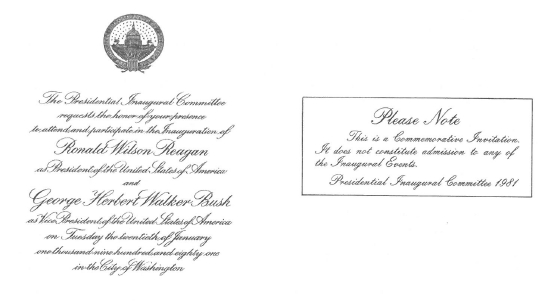 The Presidential Inaugural Committee
requests the honor of your presence
to attend and participate in the Inauguration of
Ronald Wilson Reagan
as President of the United States of America
and
George Herbert Walker Bush
as Vice President of the United States of America
on Tuesday the twentieth of January
one thousand nine hundred and eighty one
in the City of Washington
Please Note
This is a Commemorative Invitation.
It does not constitute admission to any of
the Inaugural Events.
Presidential Inaugural Committee 1981